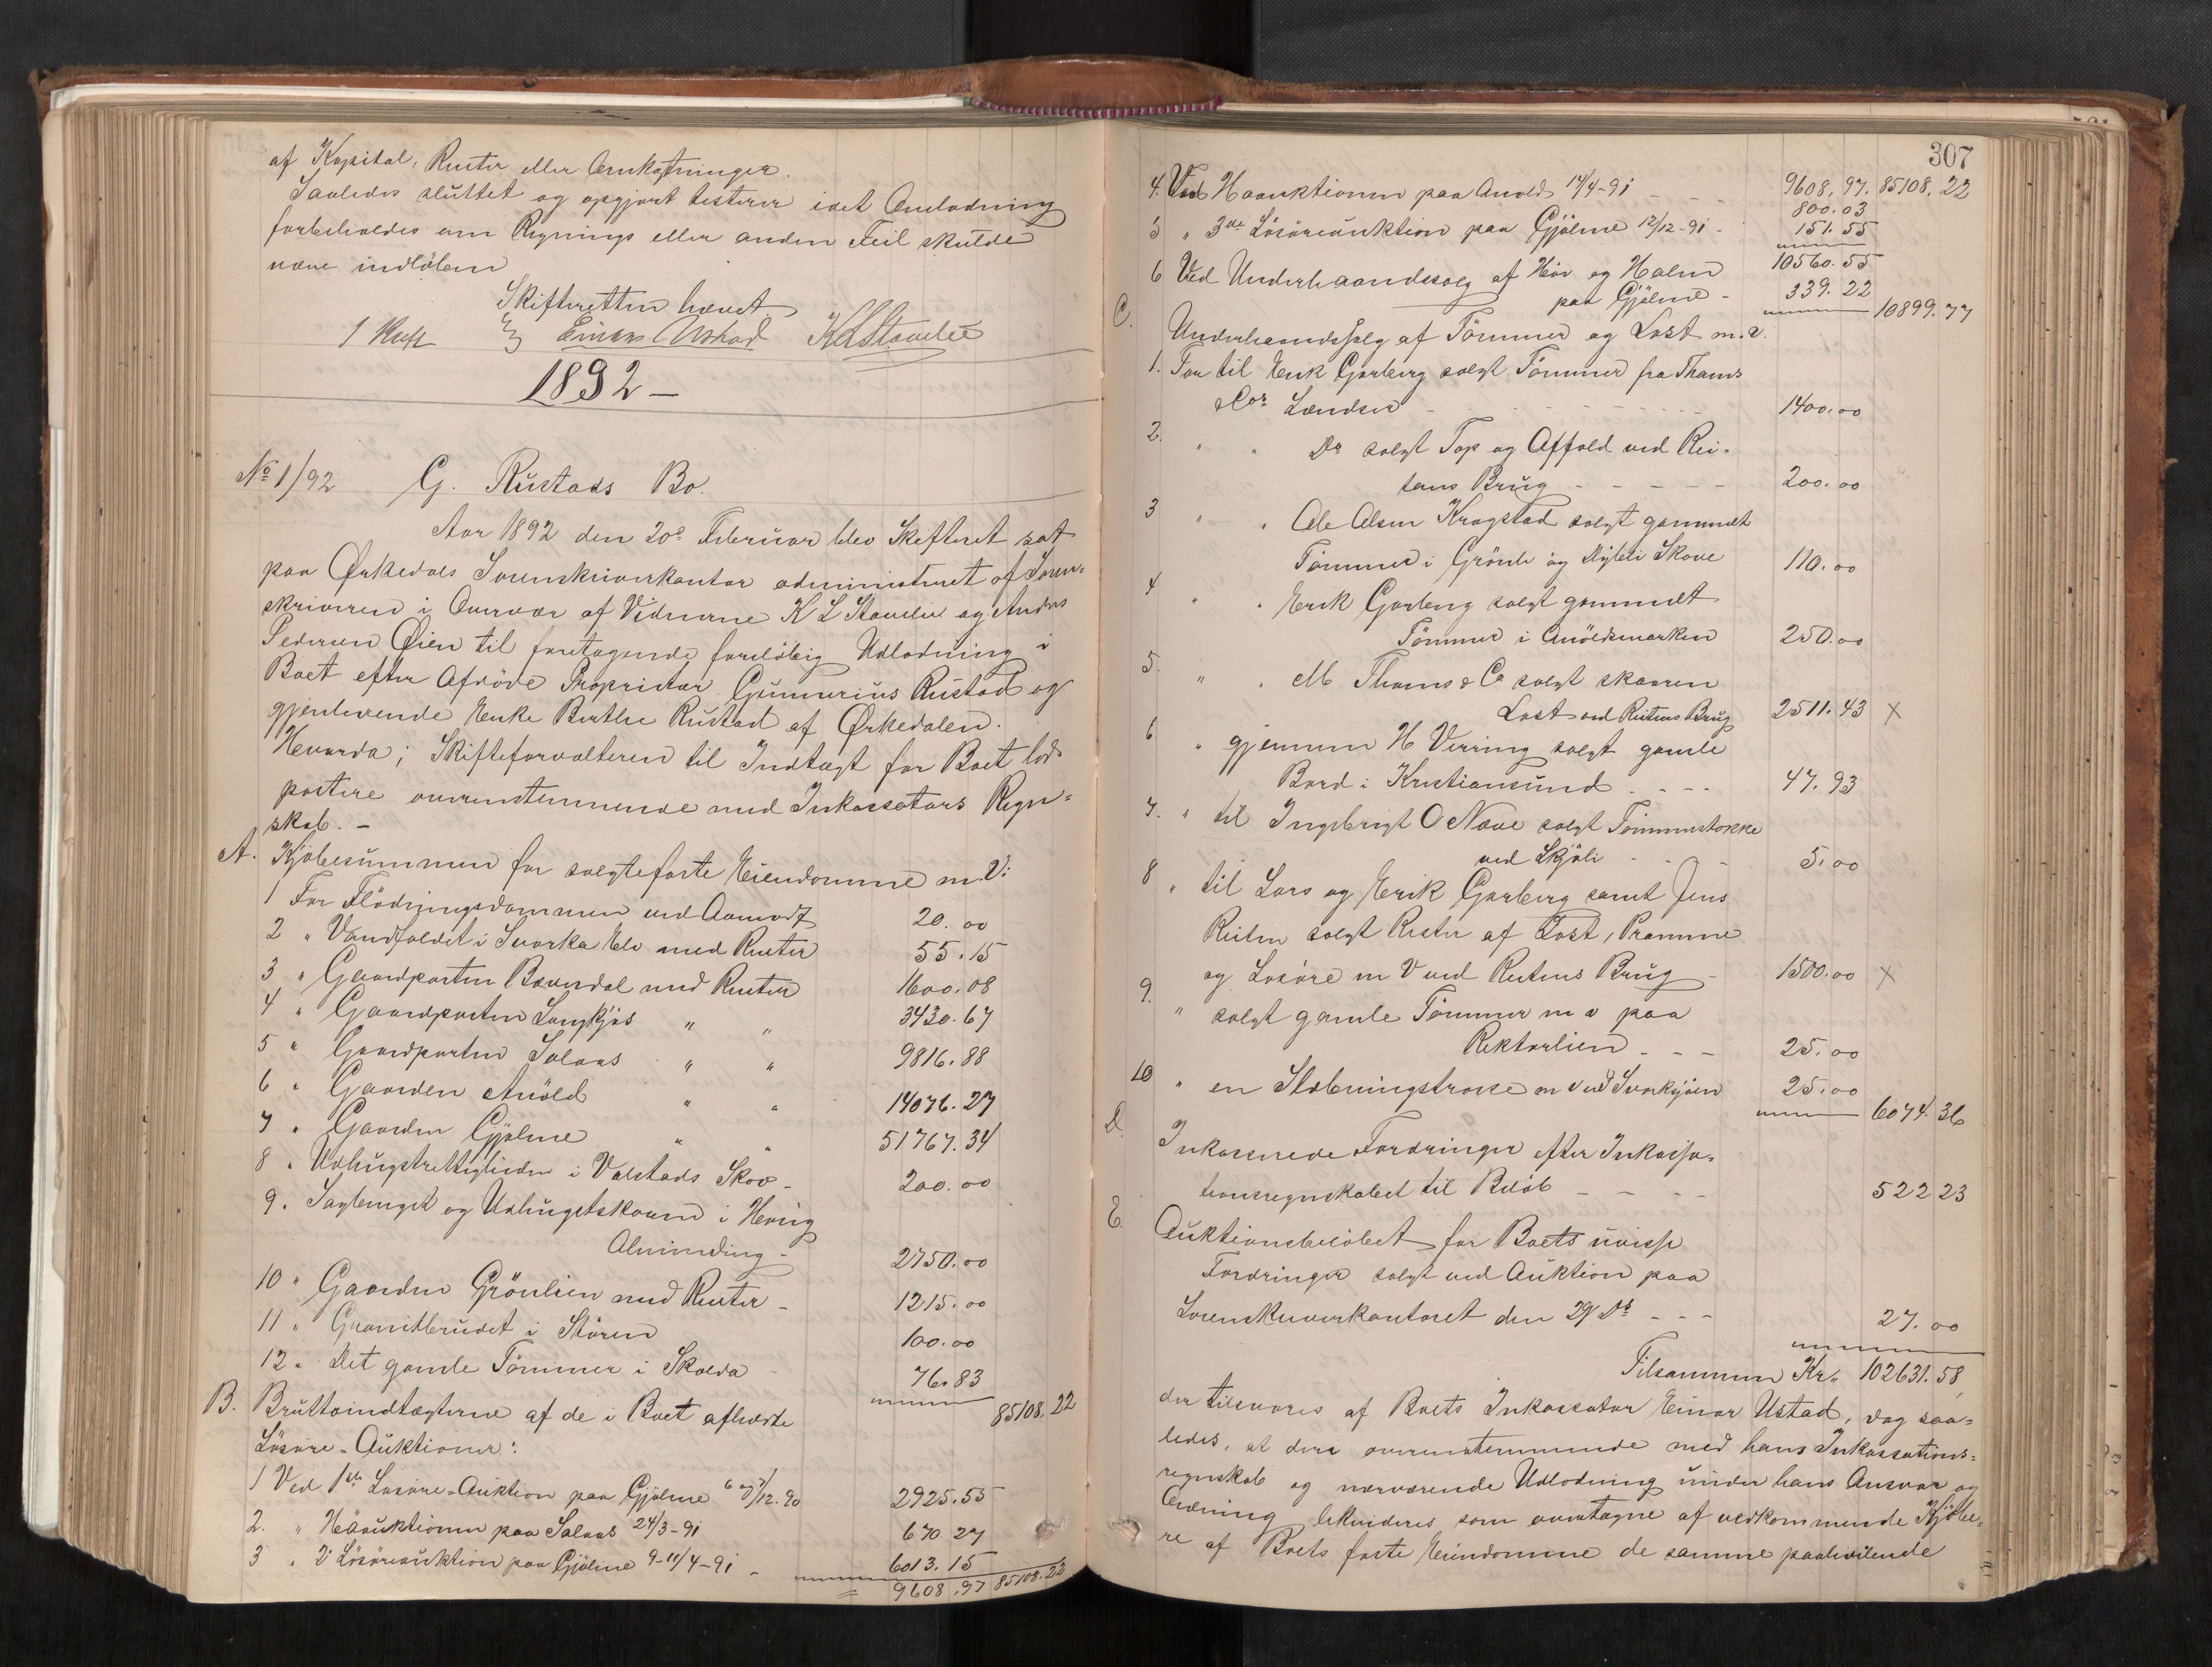 af Kapital, Renter eller Omkostninger.
Saaledes sluttet og opgjort testerer idet Omlodning
forbeholdes om Regnings eller anden Feil skulde
være indløben
Skifteretten hævet.
Einar Ustad K L Stavelie
1892 –
No 1/92 G. Rustads Bo.
Aar 1892 den 20de Februar blev Skifteret sat
paa Ørkedals Sorenskriverkontor administreret af Soren-
skriveren i Overvær af Vidnerne K L Stavelie og Anders
Pedersen Øien til foretagende foreløbig Udlodning i
Boet efter Afdøde Proprietær Gunnerius Rustad og
gjenlevende Enke Berthe Rustad af Ørkedalen.
Hvorda; Skifteforvalteren til Indtægt for Boet lod
postere overenstemmende med Inkassators Regn-
skab. –
A. Kjøbesummen for solgte faste Eiendomme m.V:
1 For Flødningsdammen ved Aamodt 20.00
2 " Vandfaldet i Svorka Elv med Renter 55.15
3 " Gaardparten Bævredal med Renter 1600.08
4 " Gaardparten Langkjøs " " 3430.67
5 " Gaardparten Solaas " " 9816.88
6 " Gaarden Anøld " " 14076.27
7 " Gaarden Gjølme " " 51767.34
8 " Udhugstrettigheden i Valstads Skov – 200.00
9. Sagbruget og Udhugstskoven i Hevng
Alminding – 2750.00
10 " Gaarden Grönlien med Renter – 1215.00
11 " Granitbrudet i Støren 100.00
12 " Det gamle Tømmer i Skolda – 76.83
B. Bruttoindtægterne af de i Boet afholdte 85108.22
Løsøre-Auktioner:
1 Ved 1ste Løsøre-Auktion paa Gjølme 6 og 7/12.90 2925.55
2. " Høauktionen paa Solaas 24/3-91 670.27
3 " 2' Løsøreauktion paa Gjølme 9-11/4-91 – 6013.15
9608.97 85108.22
307
4. Ved Høauktionen paa Anøld 14/4-91 – – – 9608.97. 85108.22
800.03
5 " 3die Løsøreauktion paa Gjølme 12/12-91 – 151.55
10560.55
6 Ved Underhaandssalg af Høi og Halm
paa Gjølme – 339.22
10899.77
C. Underhaandssalg af Tømmer og Last m.v.
1. For til Erik Garberg solgt Tømmer fra Thams
& Cos Lændser – – – 1400.00
2. " " Do solgt Top og Affald ved Rei-
tans Brug – – – – – 200.00
3 " " Ole Olsen Krogstad solgt gammelt
Tømmer i Grönli og Nyhli Skove 110.00
4 " " Erik Garberg solgt gammelt
Tømmer i Anöldsmarken 250.00
5. " " M Thams & Co solgt skaaren
Last ved Reitens Brug 2511.43 X
6 " gjennem H Verring solgt gamle
Bord i Kristiansund – – – 47.93
7. " til Ingebrigt O Næve solgt Tømmerstokke
ved Skjöli – – – 5.00
8 " til Lars og Erik Garberg samt Jens
Reiten solgt Rester af Last, Pramme
og Løsøre m V ved Reitens Brug – 1500.00 X
9. " solgt gamle Tømmer m v paa
Rektorlien – – – 25.00
10 " en Støbningstrosse m v ved Svorkjöen 25.00
6074.36
D. Inkasserede Fordringer efter Inkassa-
tionsregnskabet til Beløb – – – – 522 23
E. Auktionsbeløbet for Boets uvisse
Fordringer solgt ved Auktion paa
Sorenskriverkontoret den 29 Ds – – – 27.00
Tilsammen Kr. 102631.58,
der tilsvares af Boets Inkassator Einar Ustad, dog saa-
ledes, at dere overenstemmende med hans Inkassations-
regnskab og nærværende Udlodning under hans Ansvar og
Ordning likvideres som overtagne af vedkommende Kjøbe-
re af Boets faste Eiendomme de samme paahvilende